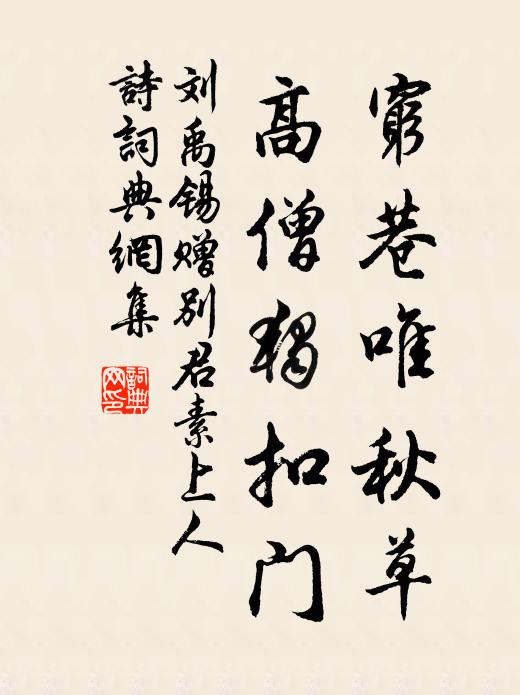 窮巷唯秋草
高僧獨扣門
刘禹锡赠别君素上人
詩詞典網集
詞典网印